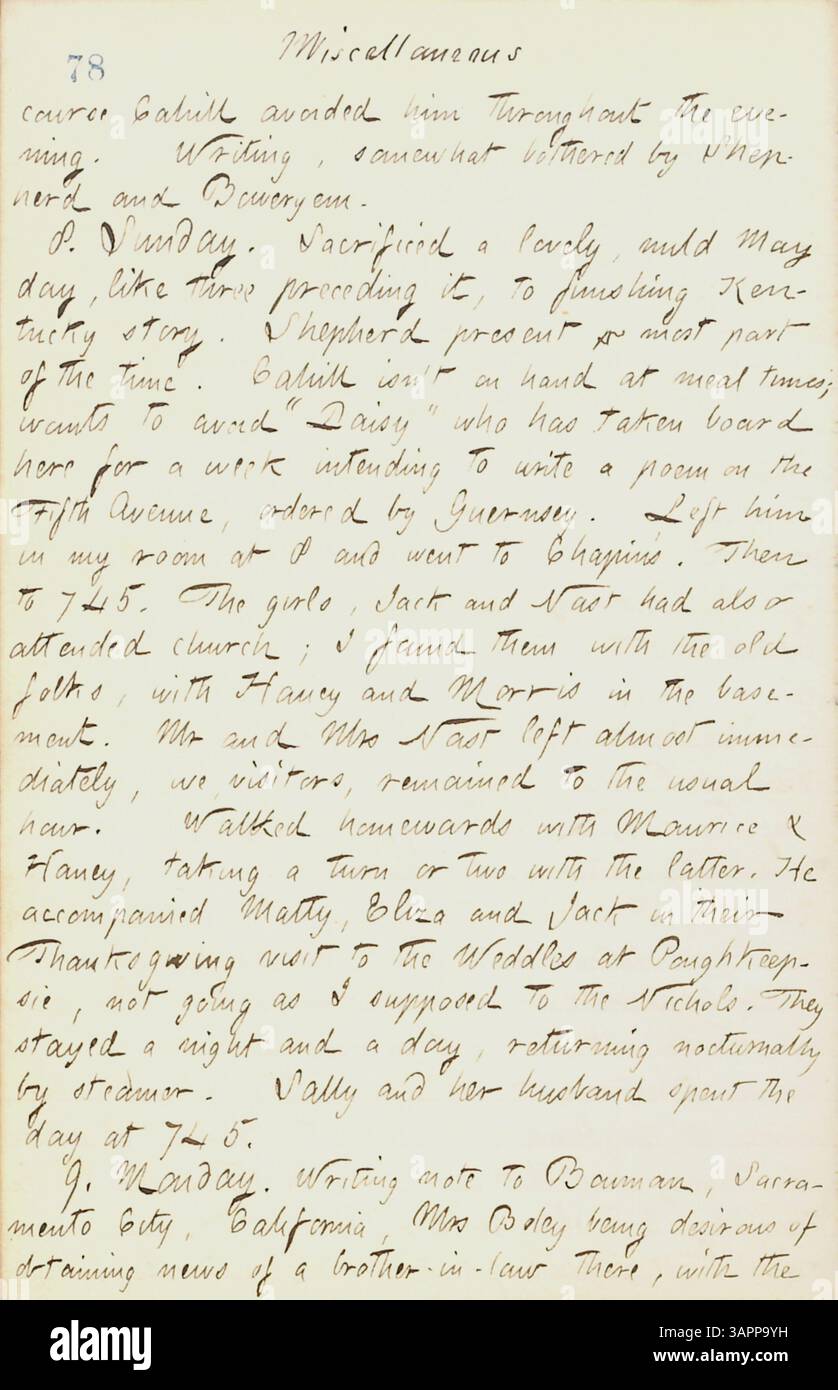 78
Miscellaneous
course Cahill avoided him throughout the eve-
ning. Writing, somewhat bothered by Shep-
herd and Boweryem.
8. Sunday. Sacrificed a lovely, mild May
day, like three preceding it, to finishing Ken-
tucky story. Shepherd present or most part
of the time. Cahill isn't on hand at meal times;
wants to avoid "Daisy" who has taken board
here for a week intending to write a poem on the
Fifth Avenue, ordered by Guernsey. Left him
in my room at 8 and went to Chapin's. Then
to 745. The girls, Jack and Nast had also
attended church; I found them with the old
folks, with Haney and Morris in the base-
ment. Mr and Mrs Nast left almost imme-
diately, we visitors, remained to the usual
hour. Walked homewards with Maurice &
Haney, taking a turn or two with the latter. He
accompanied Matty, Eliza and Jack in their
Thanksgiving visit to the Weddles at Poughkeep-
sie, not going as I supposed to the Nichols. They
stayed a night and a day, returning nocturnally
by steamer. Sally and her husband spent the
day at 745.
9. Monday. Writing note to Bowman, Sacra-
mento City, California, Mrs Boley being desirous of
obtaining news of a brother-in-law there, with the
alamy
Image ID: 3APP9YH
www.alamy.com